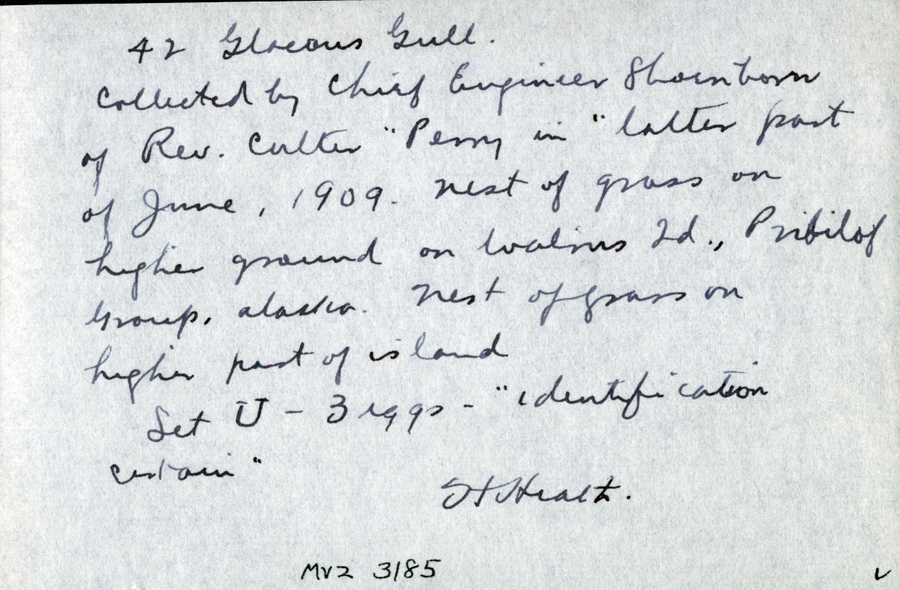 42 Glacous Gull.
Collected by Chief Engineer Shoenborn
of Rev. Cutter "Perry in " latter part
of June, 1909. Nest of grass on
higher ground on Walrus Id., Pribilof
Group, Alaska. Nest of grass on
higher part of island
Set U - 3 eggs - "identification
certain"
MVZ 3185